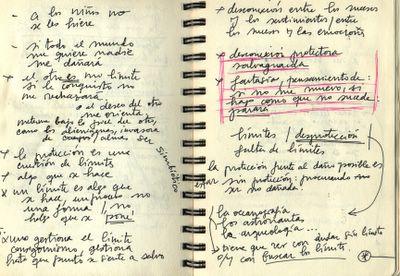 - a los niños no
se les hiere
- si todo el mundo
me quiere nadie
me dañará
* el otro es mi límite
si le conquisto no
me rechazará
a el deseo del otro
me orienta
meterme bajo la piel del otro,
como los alienígenas, invasora
de cuerpos / alma ser
* la protección es una
cuestión de límites
* algo que se hace
* un límite es algo que
se hace, un proceso no
una forma / no
hay que pone!
uno gestiona el límite
contiguo, gestiona
hasta que punto se siente a salvo
Simbiótica
* desconexión entre los sucesos
y los sentimientos / entre
los sucesos y las emociones
* desconexión protectora
salvaguarda
* fantasía, pensamiento de:
si no me muevo, si
hago como que no sucede:
parará
límites / desprotección
falta de límites
la protección frente al daño posible es
estar sin protección: procurando no
ser no dañada
la oceanografía
los astronautas
la arqueología...
tiene que ver con andar sin límite
o/y con buscar los límites